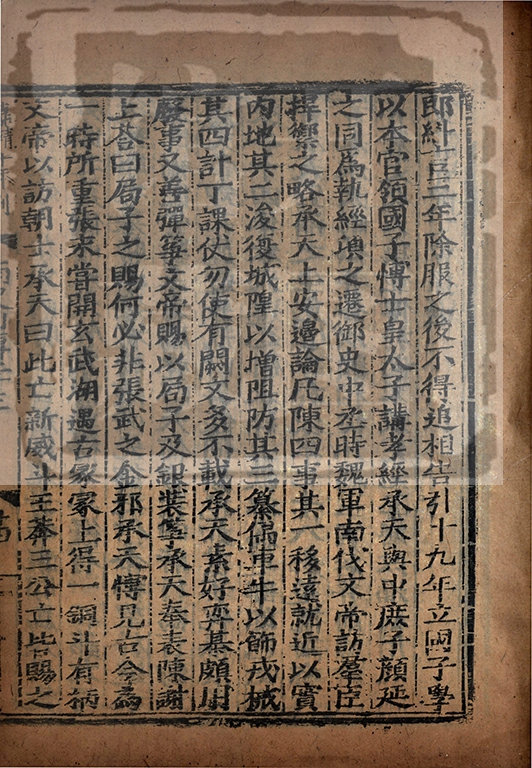 即糾言三年除服之後不得追相告引十九年立國子學
以本官領國子博士皇太子講孝經承天與中庶子顏延
之同為執經頃之遷御史中丞時魏軍南伐文帝訪羣臣
捍禦之略承天上安邊論凡陳四事其一移遠就近以實
内地其二浚復城隍以增阻防其三纂偶車牛以飾戎械
其四計丁課仗勿使有闕文多不載承天素好弈棊頗用
廢事又善彈箏文帝賜以局子及銀裝箏承天奉表陳謝
上荅曰局子之賜何必非張武之金邪承天博見古今為
一時所重張永嘗開玄武湖遇古冢冢上得一銅斗有柄
文帝以訪朝士承天曰此亡新威斗王莽三公亡皆賜之